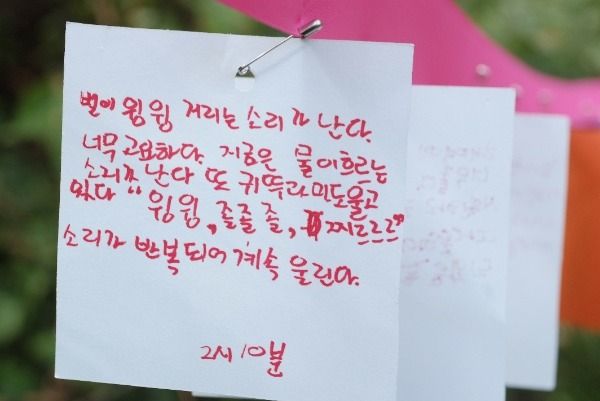 벌이 윙윙 거리는 소리가 난다.
너무 고요하다. 지금은 물이흐르는
소리가 난다 또 귀뚜라미도울고
있다 "윙윙, 졸졸졸, 찌르르르"
소리가 반복되어 계속 울린다.
2시 10분